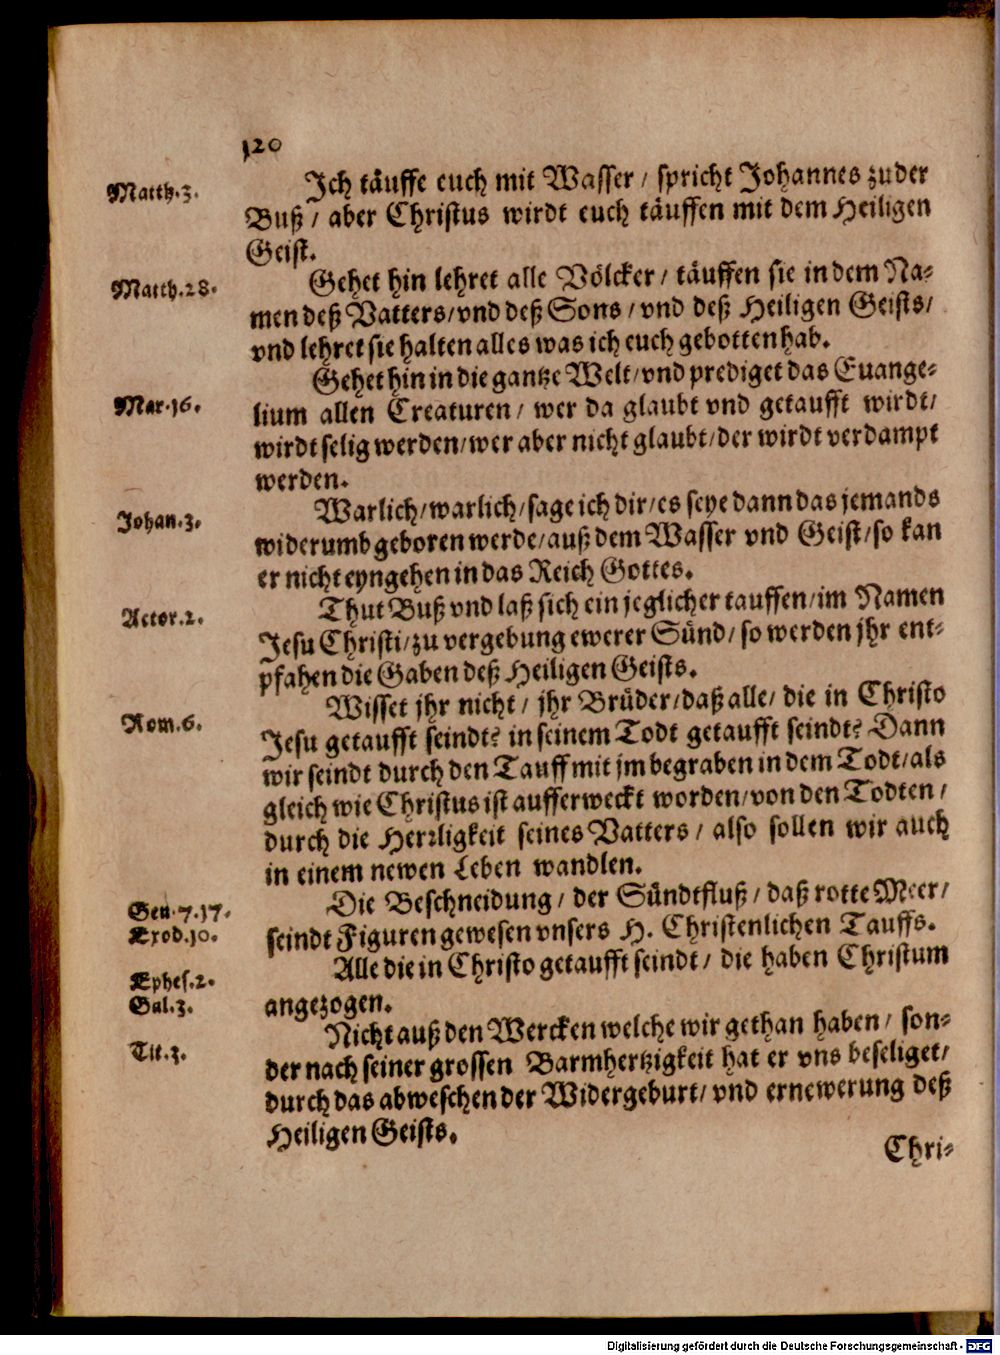 120
Matth.3.
Ich täuffe euch mit Wasser / spricht Johannes zu der
Buß / aber Christus wirdt euch täuffen mit dem Heiligen
Geist.
Matth.28.
Gehet hin lehret alle Völcker / täuffen sie in dem Na-
men deß Vatters / vnd deß Sons / vnd deß Heiligen Geists /
vnd lehret sie halten alles was ich euch gebotten hab.
Mar.16.
Gehet hin in die gantze Welt / vnd prediget das Euange-
lium allen Creaturen / wer da glaubt vnd getaufft wirdt /
wirdt selig werden / wer aber nicht glaubt / der wirdt verdampt
werden.
Johan.3.
Warlich / warlich / sage ich dir / es seye dann das jemands
widerumb geboren werde / auß dem Wasser vnd Geist / so kan
er nicht eyngehen in das Reich Gottes.
Actor.2.
Thut Buß vnd laß sich ein jeglicher tauffen / im Namen
Jesu Christi / zu vergebung ewerer Sünd / so werden jhr ent-
pfahen die Gaben deß Heiligen Geists.
Rom.6.
Wisset jhr nicht / jhr Brüder / daß alle / die in Christo
Jesu getaufft seindt? in seinem Todt getaufft seindt? Dann
wir seindt durch den Tauff mit jm begraben in dem Todt / als
gleich wie Christus ist aufferweckt worden / von den Todten /
durch die Herrligkeit seines Vatters / also sollen wir auch
in einem newen Leben wandlen.
Gen.7.17.
Exod.10.
Die Beschneidung / der Sündtfluß / daß rotte Meer /
seindt Figuren gewesen vnsers H. Christenlichen Tauffs.
Ephes.2.
Gal.3.
Alle die in Christo getaufft seindt / die haben Christum
angezogen.
Tit.3.
Nicht auß den Wercken welche wir gethan haben / son-
der nach seiner grossen Barmhertzigkeit hat er vns beseliget /
durch das abweschen der Widergeburt / vnd ernewerung deß
Heiligen Geists.
Chri-
Digitalisierung gefördert durch die Deutsche Forschungsgemeinschaft - DFG